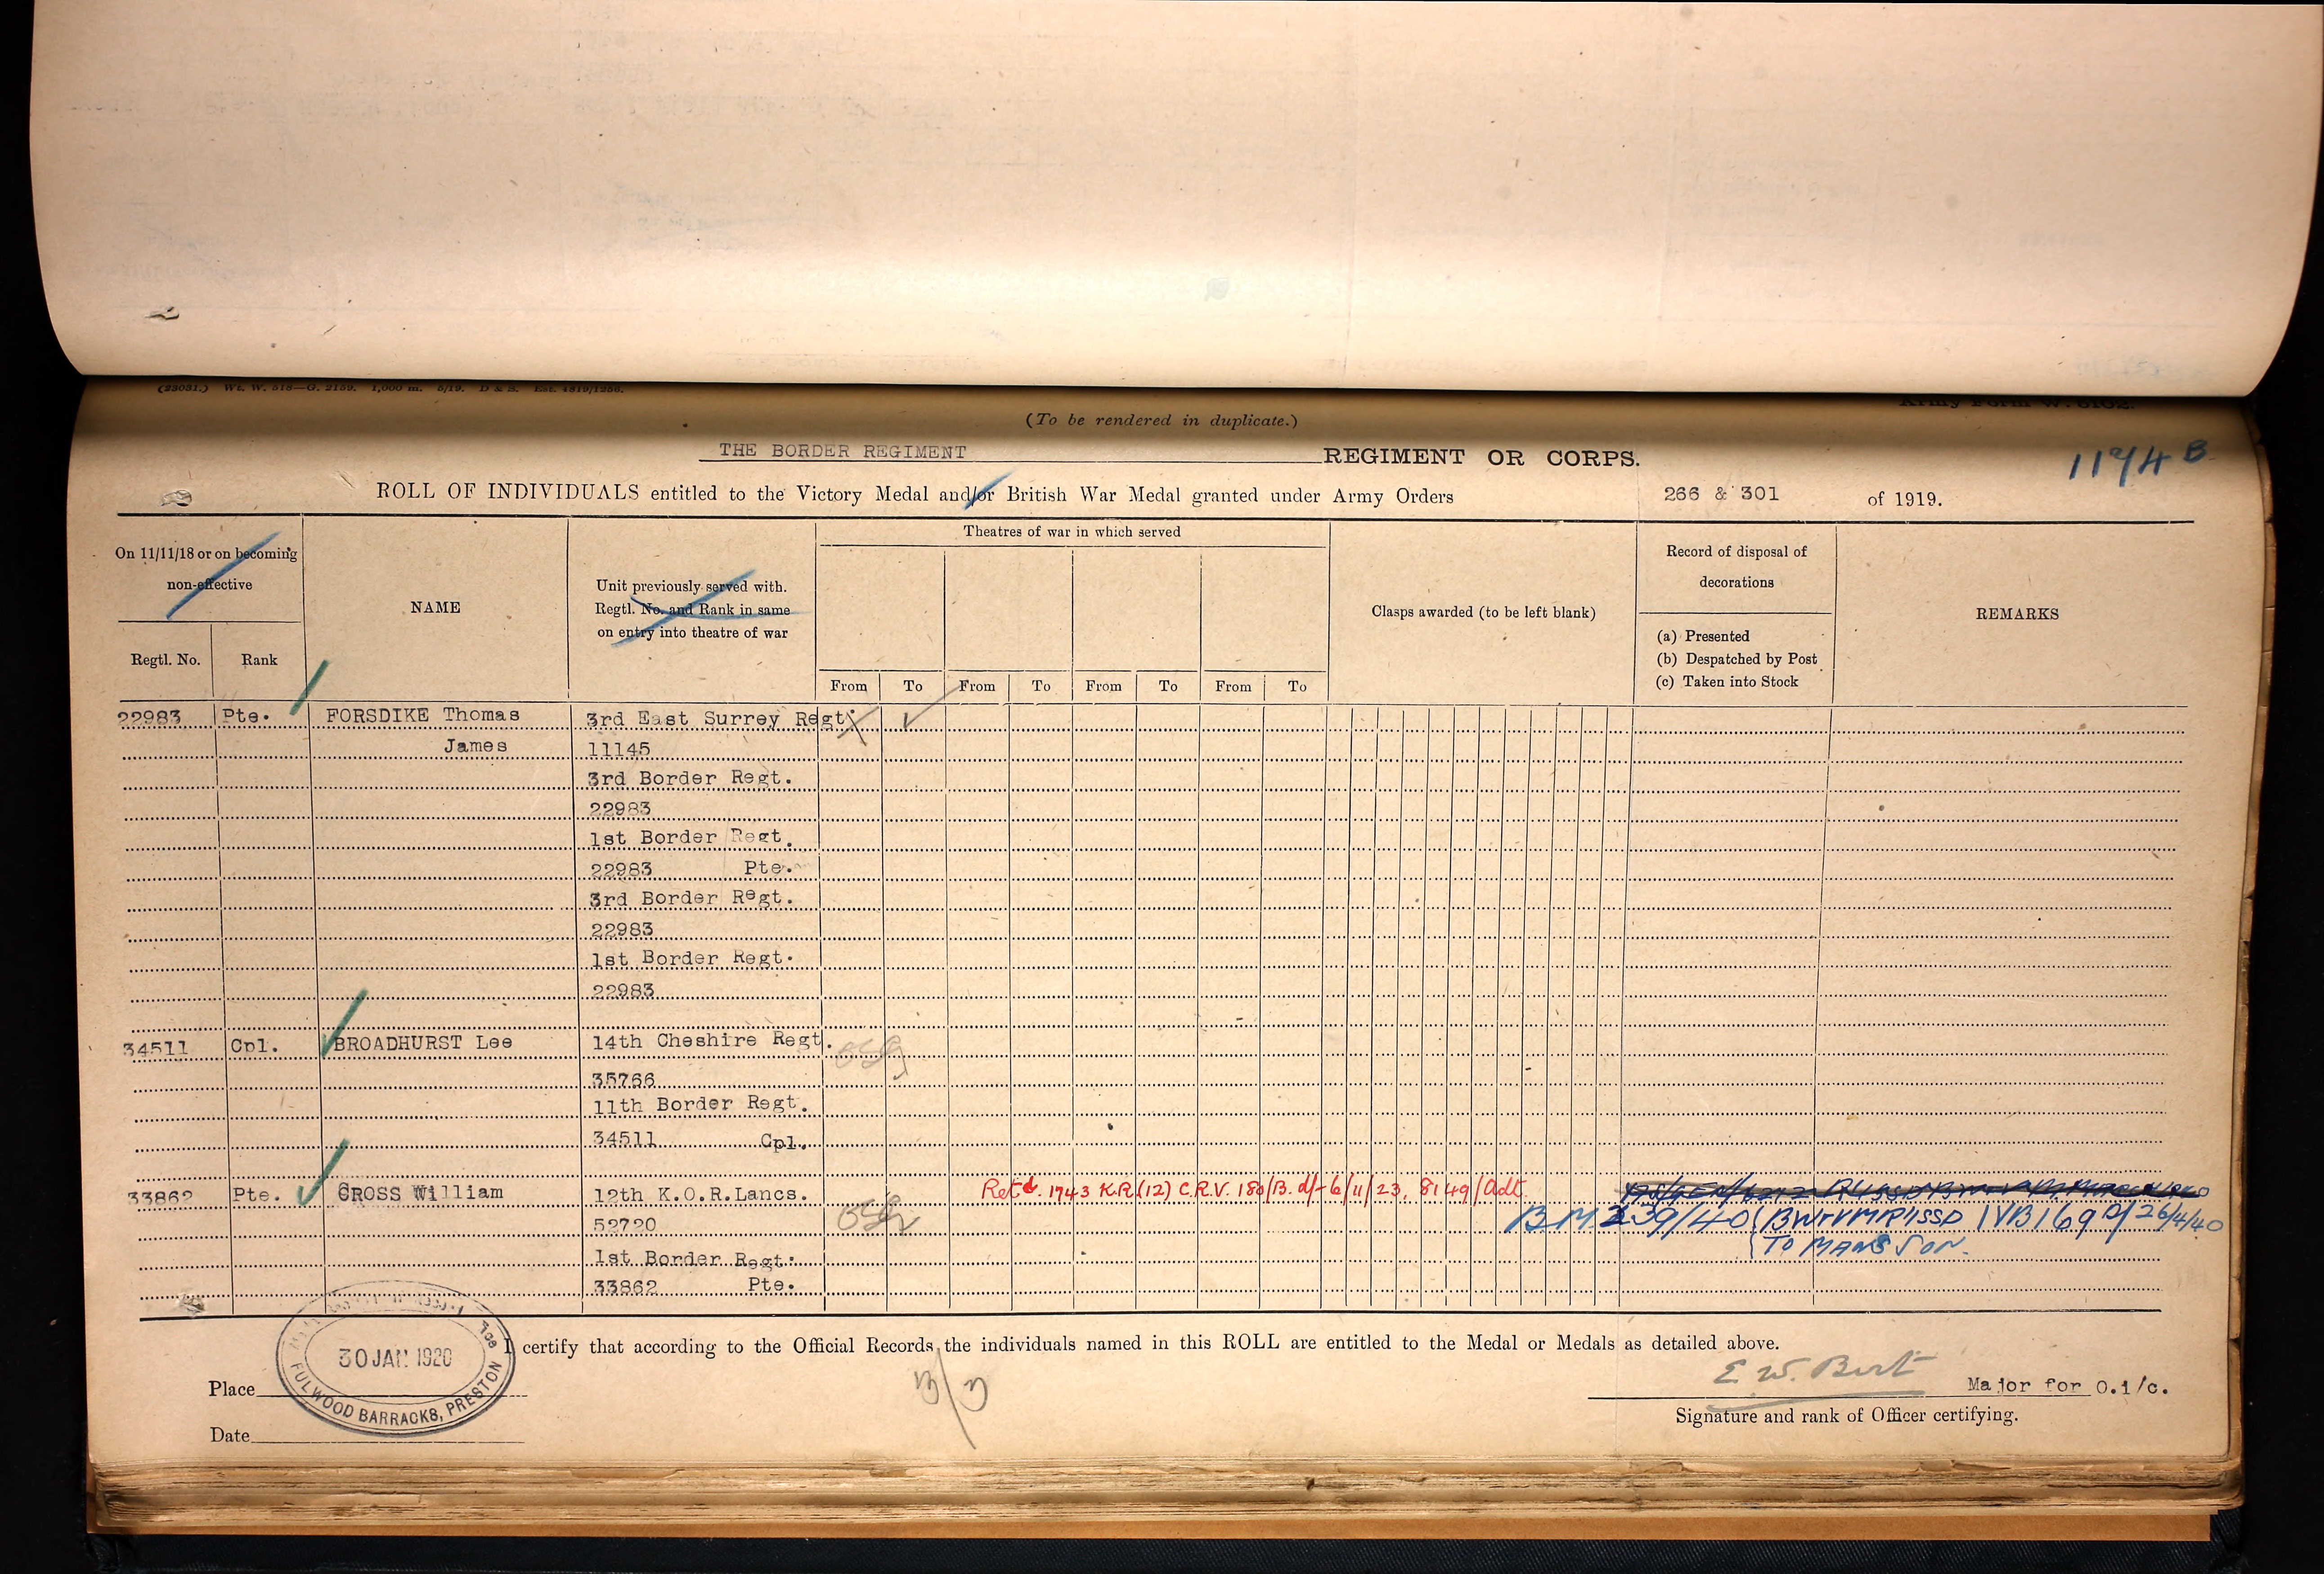 (23031.) Wt. W. 518—G. 2159. 1,000 m. 5/19. D & S. Est. 4819/1256.
Army Form W. 5162.
(To be rendered in duplicate.)
THE BORDER REGIMENT REGIMENT OR CORPS.
1174 B
ROLL OF INDIVIDUALS entitled to the Victory Medal and/or British War Medal granted under Army Orders 266 & 301 of 1919.
On 11/11/18 or on becoming
non-effective
Regtl. No. Rank
NAME
Unit previously served with.
Regtl. No. and Rank in same
on entry into theatre of war
Theatres of war in which served
From To From To From To From To
Clasps awarded (to be left blank)
Record of disposal of
decorations
(a) Presented
(b) Despatched by Post
(c) Taken into Stock
REMARKS
22983 Pte. FORSDIKE Thomas 3rd East Surrey Regt.
James 11145
3rd Border Regt.
22983
1st Border Regt.
22983 Pte.
3rd Border Regt.
22983
1st Border Regt.
22983
34511 Cpl. BROADHURST Lee 14th Cheshire Regt.
35766
11th Border Regt.
34511 Cpl.
33862 Pte. CROSS William 12th K.O.R.Lancs. Retd. 1743 KR (12) C.R.V. 180/B. d/- 6/11/23, 8149/Adt
52720 B.M. 239/40 (BW+VM R/ISSD IVB 169 D/26/4/40
1st Border Regt. (TO MANS SON.
33862 Pte.
I certify that according to the Official Records the individuals named in this ROLL are entitled to the Medal or Medals as detailed above.
30 JAN 1920
FULWOOD BARRACKS, PRESTON
Place
Date
E. W. Birt Major for O.i/c.
Signature and rank of Officer certifying.